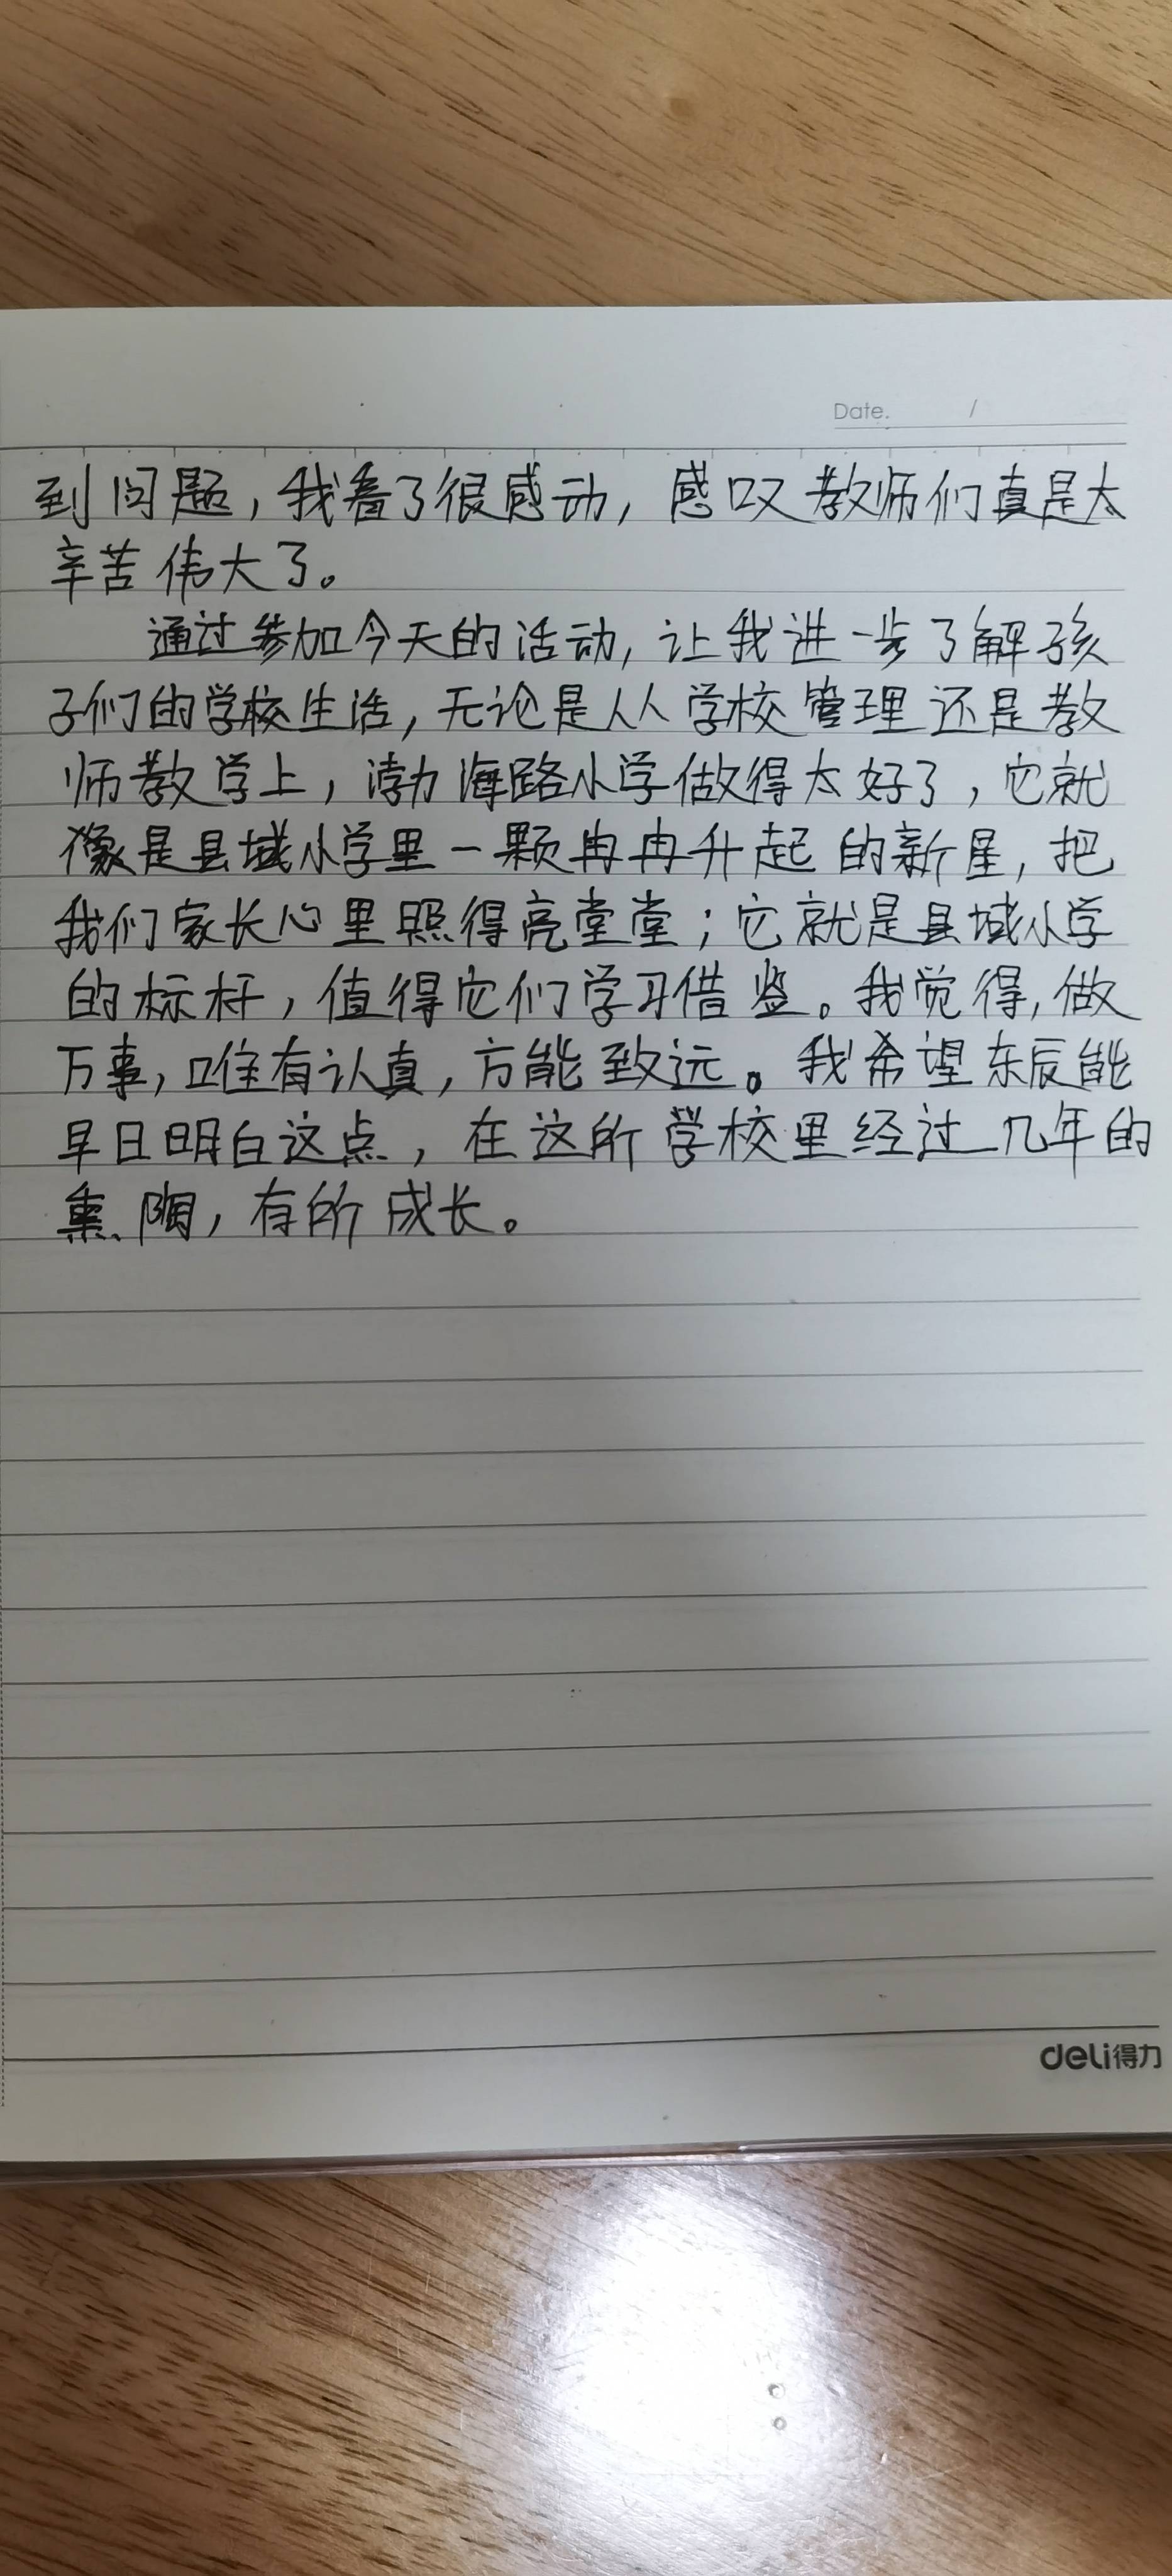 Date. /
到问题，我看了很感动，感叹教师们真是太
辛苦伟大了。
通过参加今天的活动，让我进一步了解孩
子们的学校生活，无论是从学校管理还是教
师教学上，渤海路小学做得太好了，它就
像是县域小学里一颗冉冉升起的新星，把
我们家长心里照得亮堂堂；它就是县域小学
的标杆，值得它们学习借鉴。我觉得，做
万事，唯有认真，方能致远。我希望东辰能
早日明白这点，在这所学校里经过几年的
熏陶，有所成长。
deli得力